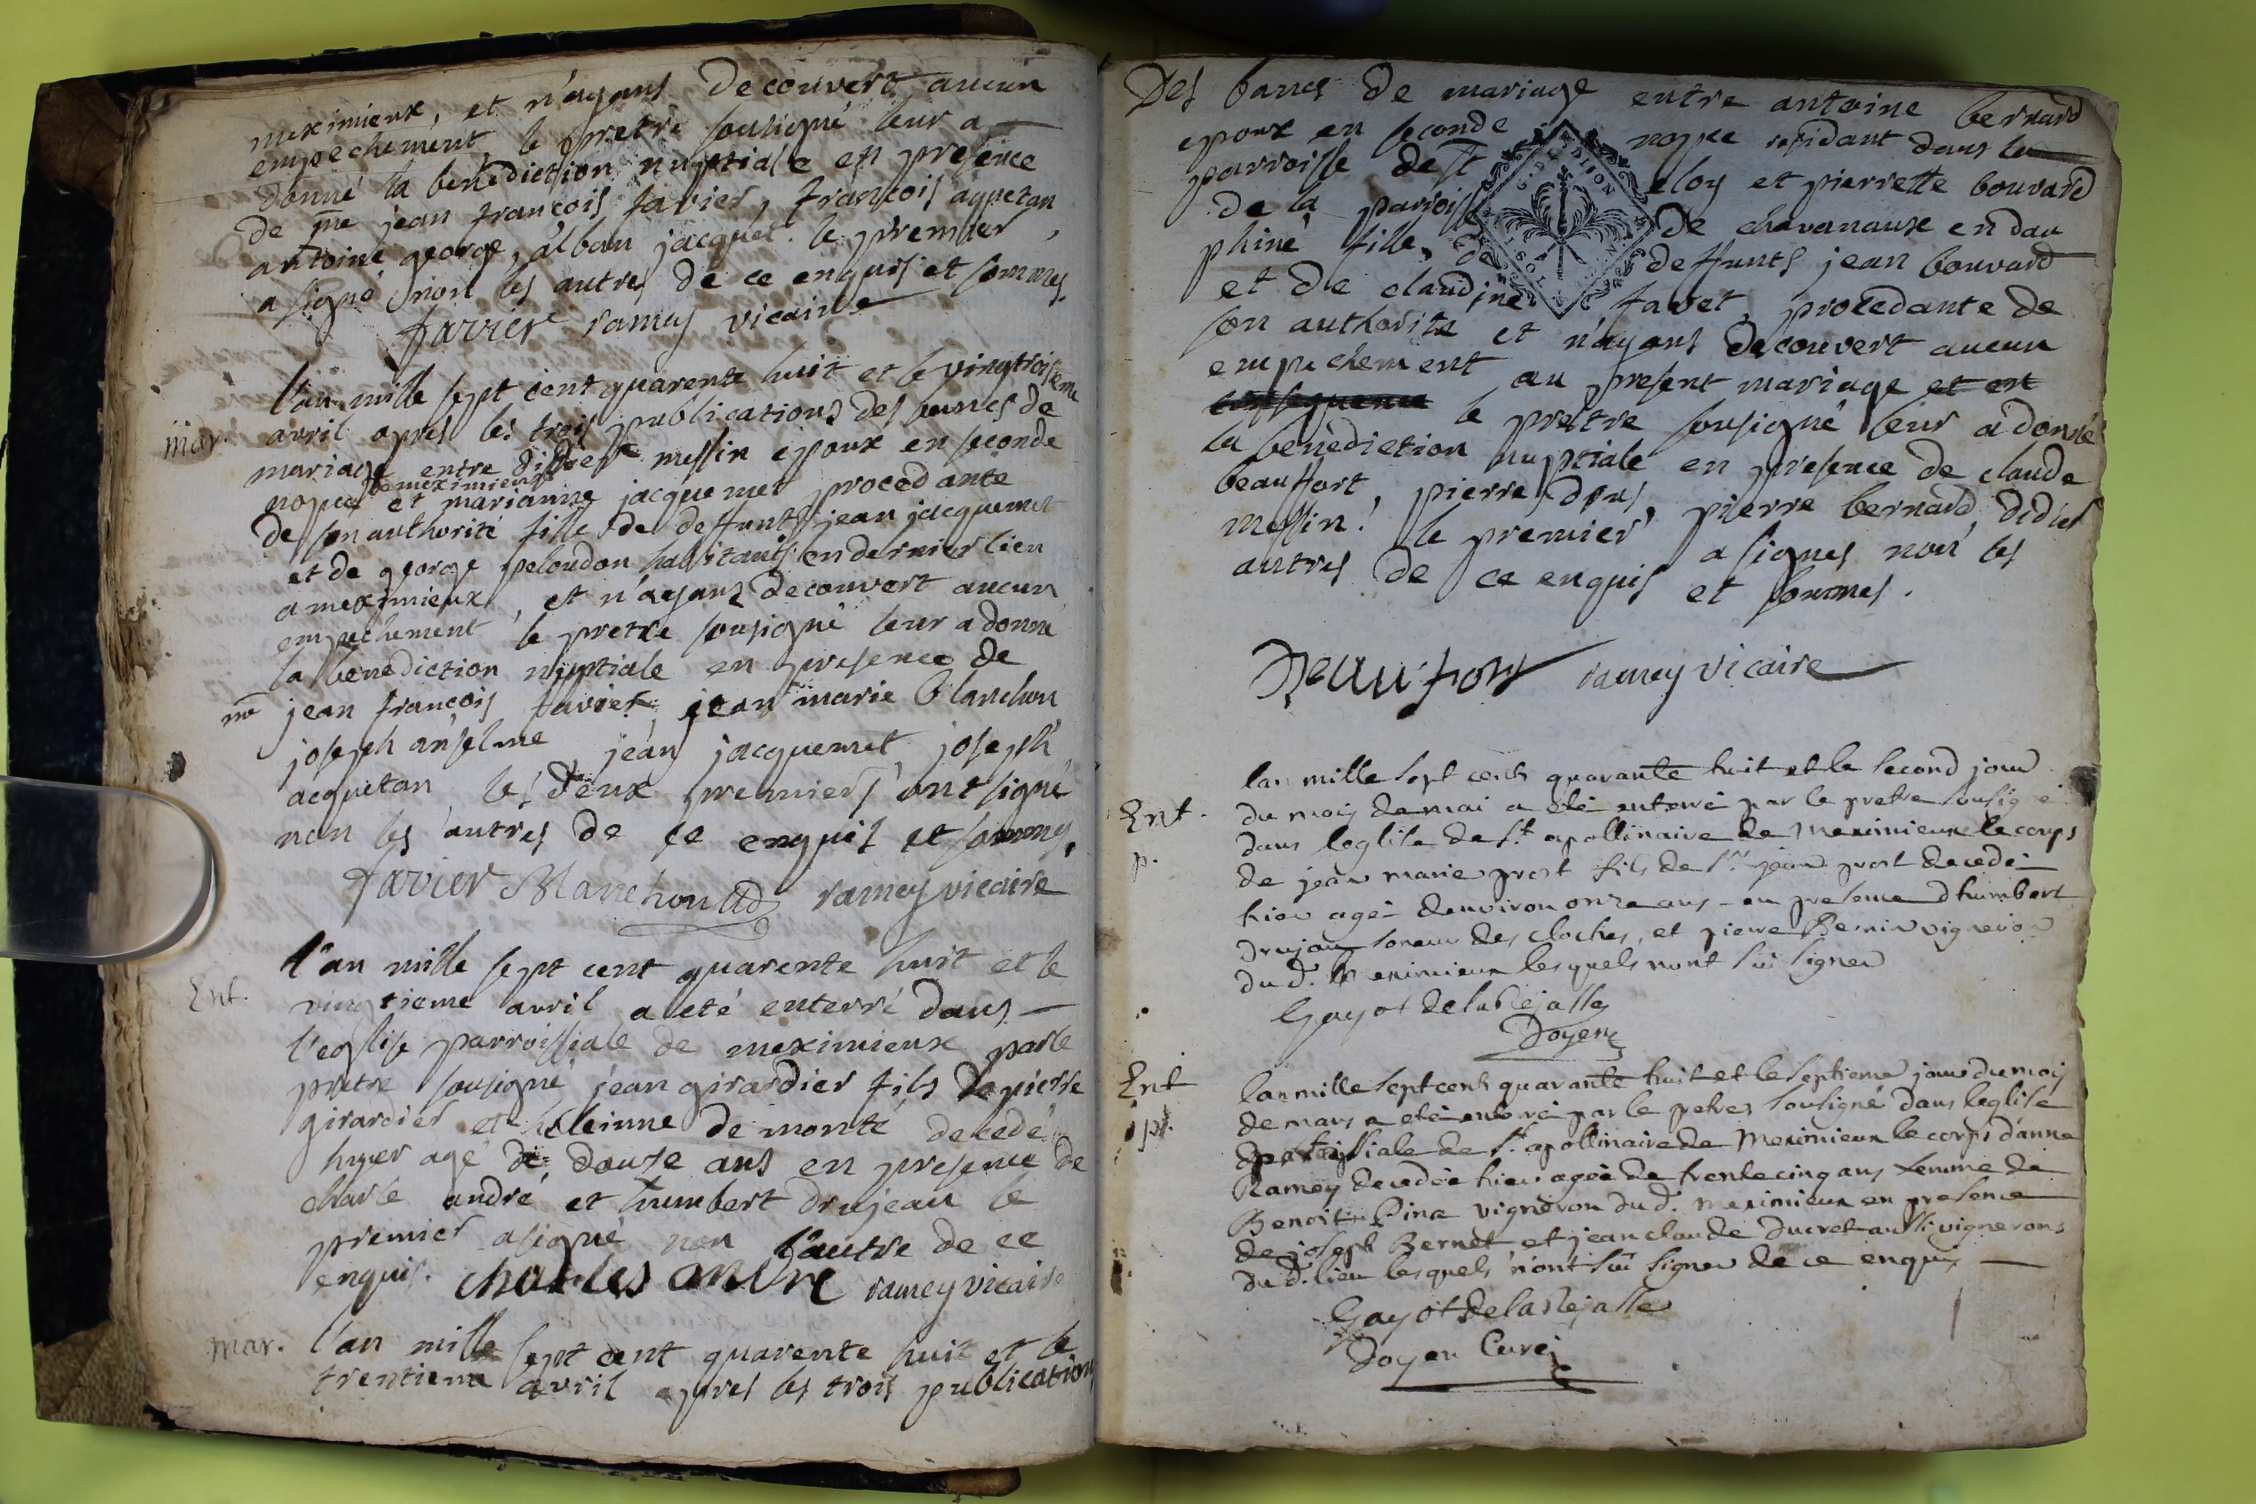 meximieux, et n'ayans decouvert aucun
empechement le pretre sousigné leur a
donné la benediction nuptiale en presence
de me jean francois favier, francois aquetan
antoine george, alban jacquet le premier
a signé non les autres de ce enquis et sommes.
favier ramey vicaire
mar. l'an mille sept cent quarente huit et le vingtroisieme
avril apres les trois publications des bancs de
mariage entre didier messin epoux en seconde
de meximieux
nopce et marianne jacquemet procedante
de son authorité fille de deffunts jean jacquemet
et de george peloudon habitants en dernier lieu
a meximieux, et n'ayans decouvert aucun
empechement le pretre sousigné leur a donné
la benediction nuptiale en presence de
me jean francois favier jean marie blanchon
joseph anselme jean jacquemet joseph
acquetan les deux premiers ont signé
non les autres de ce enquis et sommes.
favier Blanchon ramey vicaire
Ent. l'an mille sept cent quarente huit et le
vingtieme avril a eté enterré dans
l'eglise parroissiale de meximieux par le
pretre sousigné jean girardier fils de pierre
girardier et etiennne de monté decedé
hyer agé de douse ans en presence de
charle andré et humbert drujeau le
premier a signé non l'autre de ce
enquis. charles andre ramey vicaire
mar. l'an mille sept cent quarente huit et le
trentieme avril apres les trois publications
Des bancs de mariage entre antoine bernard
epoux en seconde nopce residant dans la
parroisse de st eloy et pierrette bouvard
de la parroisse de chavanaux en dau
phiné fille de deffunts jean bouvard
et de claudine favet, procedante de
son authorité et n'ayans decouvert aucun
empechement au present mariage et en
consequence le pretre sousigné leur a donné
la benediction nuptiale en presence de claude
beauffort, pierre drus, pierre bernard, didier
messin. le premier a signes non les
autres de ce enquis et sommes.
Beaufort ramey vicaire
lan mille sept cents quarante huit et le second jour
Ent. du mois de mai a eté enterré par le pretre sousigné
dans leglise de st. apollinaire de Meximieux le corps
p. de jean marie prost fils de sr jean prost decedé
hier agé denviron onze ans en presence dhumbert
drujon soneur des cloches, et pierre Bernin vigneron
du d. Meximieux lesquels nont sü signer
Gayot de la Rejasse
Doyen
Ent lan mille sept cents quarante huit et le septieme jour du mois
de mars a eté enterré par le pretre sousigné dans leglise
pr. parroissiale de st. apollinaire de Meximieux le corps danne
Ramey decedée hier agée de trente cinq ans femme de
Benoit Pina vigneron du d. meximieux en presence
de joseph Bernet et jean claude Ducret aussi vignerons
du d. lieu lesquels n'ont sü signer de ce enquis
Gayot de la Rejasse
Doyen Curé